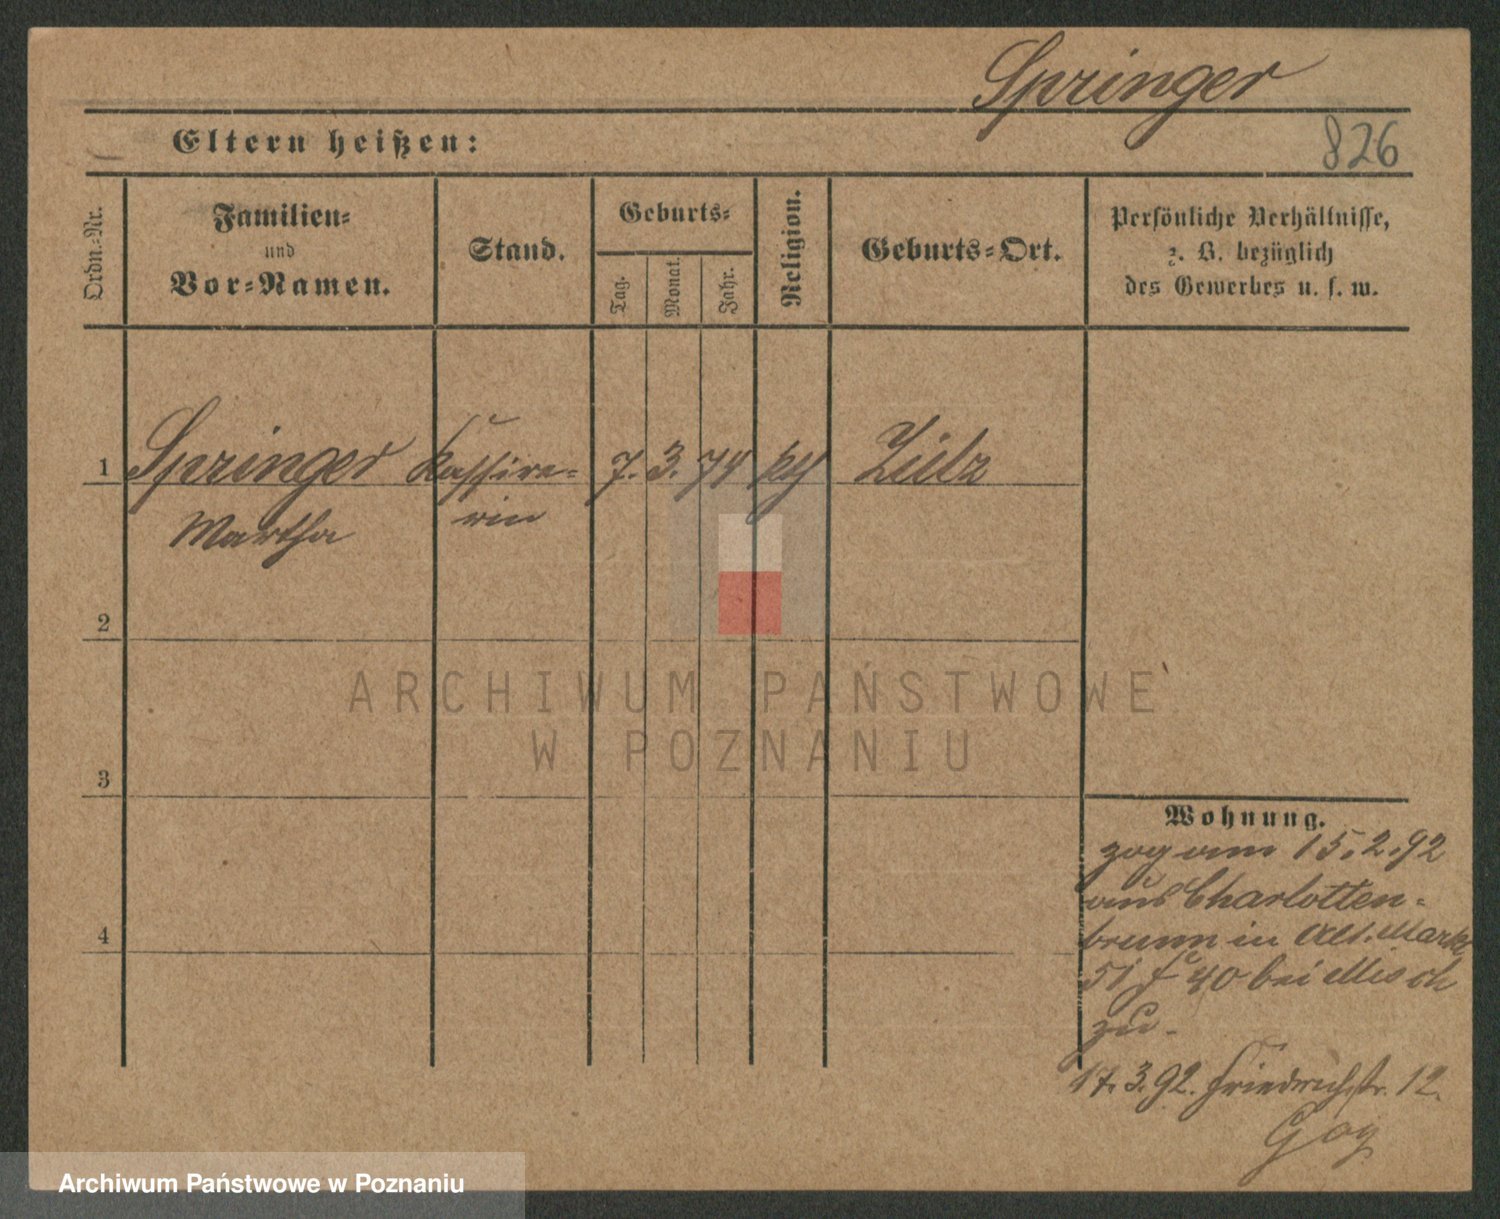 Springer
826
Eltern heißen:
Ordn.-Nr.
Familien-
und
Vor-Namen.
Stand.
Geburts-
Tag.
Monat.
Jahr.
Religion.
Geburts-Ort.
Persönliche Verhältnisse,
z. B. bezüglich
des Gewerbes u. s. w.
1 Springer Kassire- 7. 3. 74 Zülz
Martha rin
2
3
4
Wohnung.
zog am 15.2.92
aus Charlotten-
brunn in Alt. Markt
51 40 bei Misch
zu.
17.3.92. Friedrichstr. 12.
ARCHIWUM PAŃSTWOWE
W POZNANIU
Archiwum Państwowe w Poznaniu